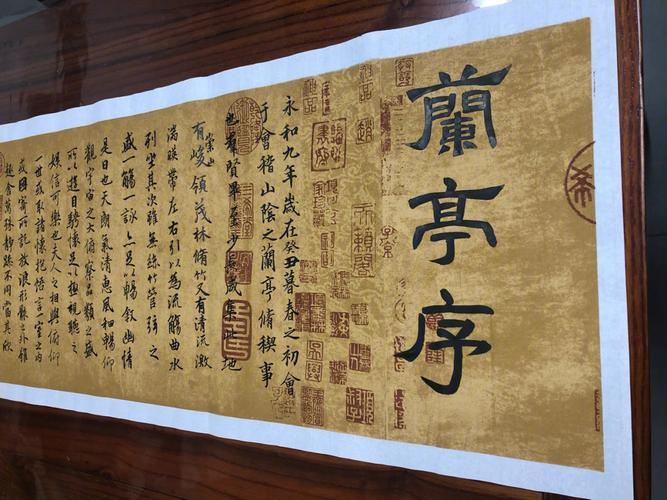 蘭亭序
永和九年歲在癸丑暮春之初會
于會稽山陰之蘭亭脩稧事
也羣賢畢至少長咸集此地
有崇山峻領茂林脩竹又有清流激
湍暎帶左右引以為流觴曲水
列坐其次雖無絲竹管弦之
盛一觴一詠亦足以暢敘幽情
是日也天朗氣清惠風和暢仰
觀宇宙之大俯察品類之盛
所以遊目騁懷足以極視聽之
娛信可樂也夫人之相與俯仰
一世或取諸懷抱悟言一室之內
或因寄所託放浪形骸之外雖
趣舍萬殊靜躁不同當其欣